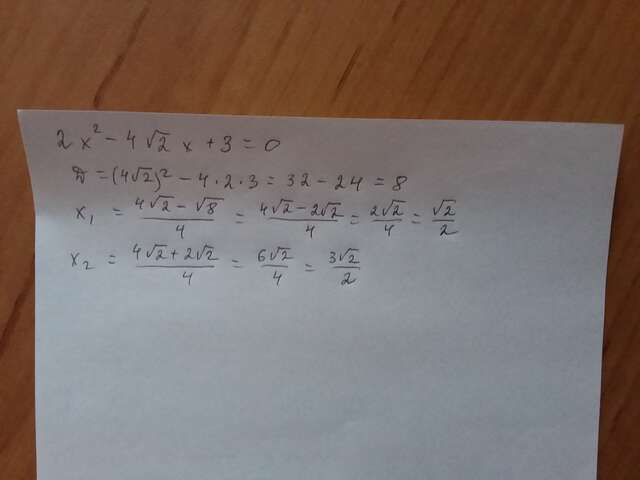 2x² - 4√2 x + 3 = 0
D = (4√2)² - 4·2·3 = 32 - 24 = 8
x₁ = (4√2 - √8)/4 = (4√2 - 2√2)/4 = 2√2/4 = √2/2
x₂ = (4√2 + 2√2)/4 = 6√2/4 = 3√2/2